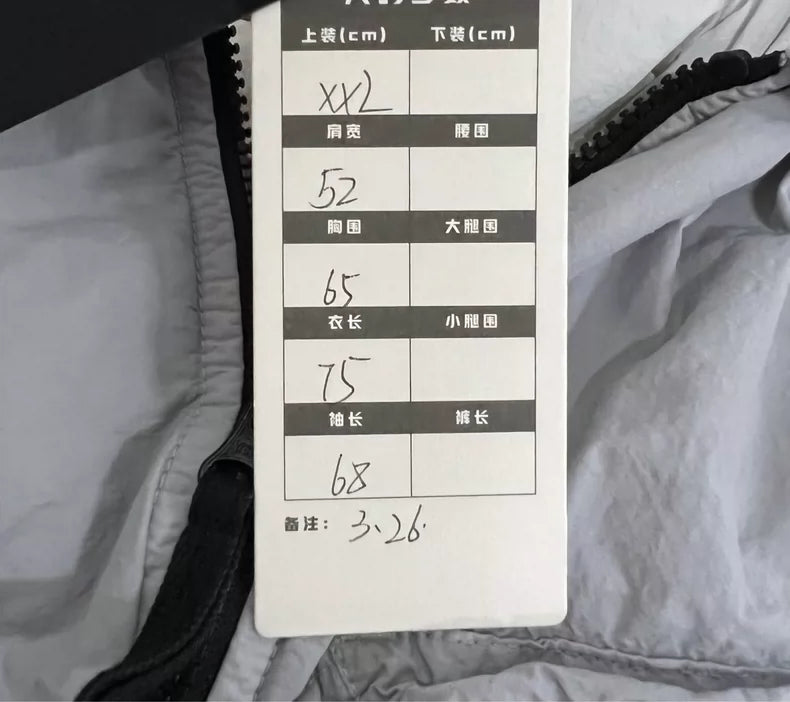 上装(cm) 下装(cm)
XXL
肩宽 腰围
52
胸围 大腿围
65
衣长 小腿围
75
袖长 裤长
68
备注: 3.26.